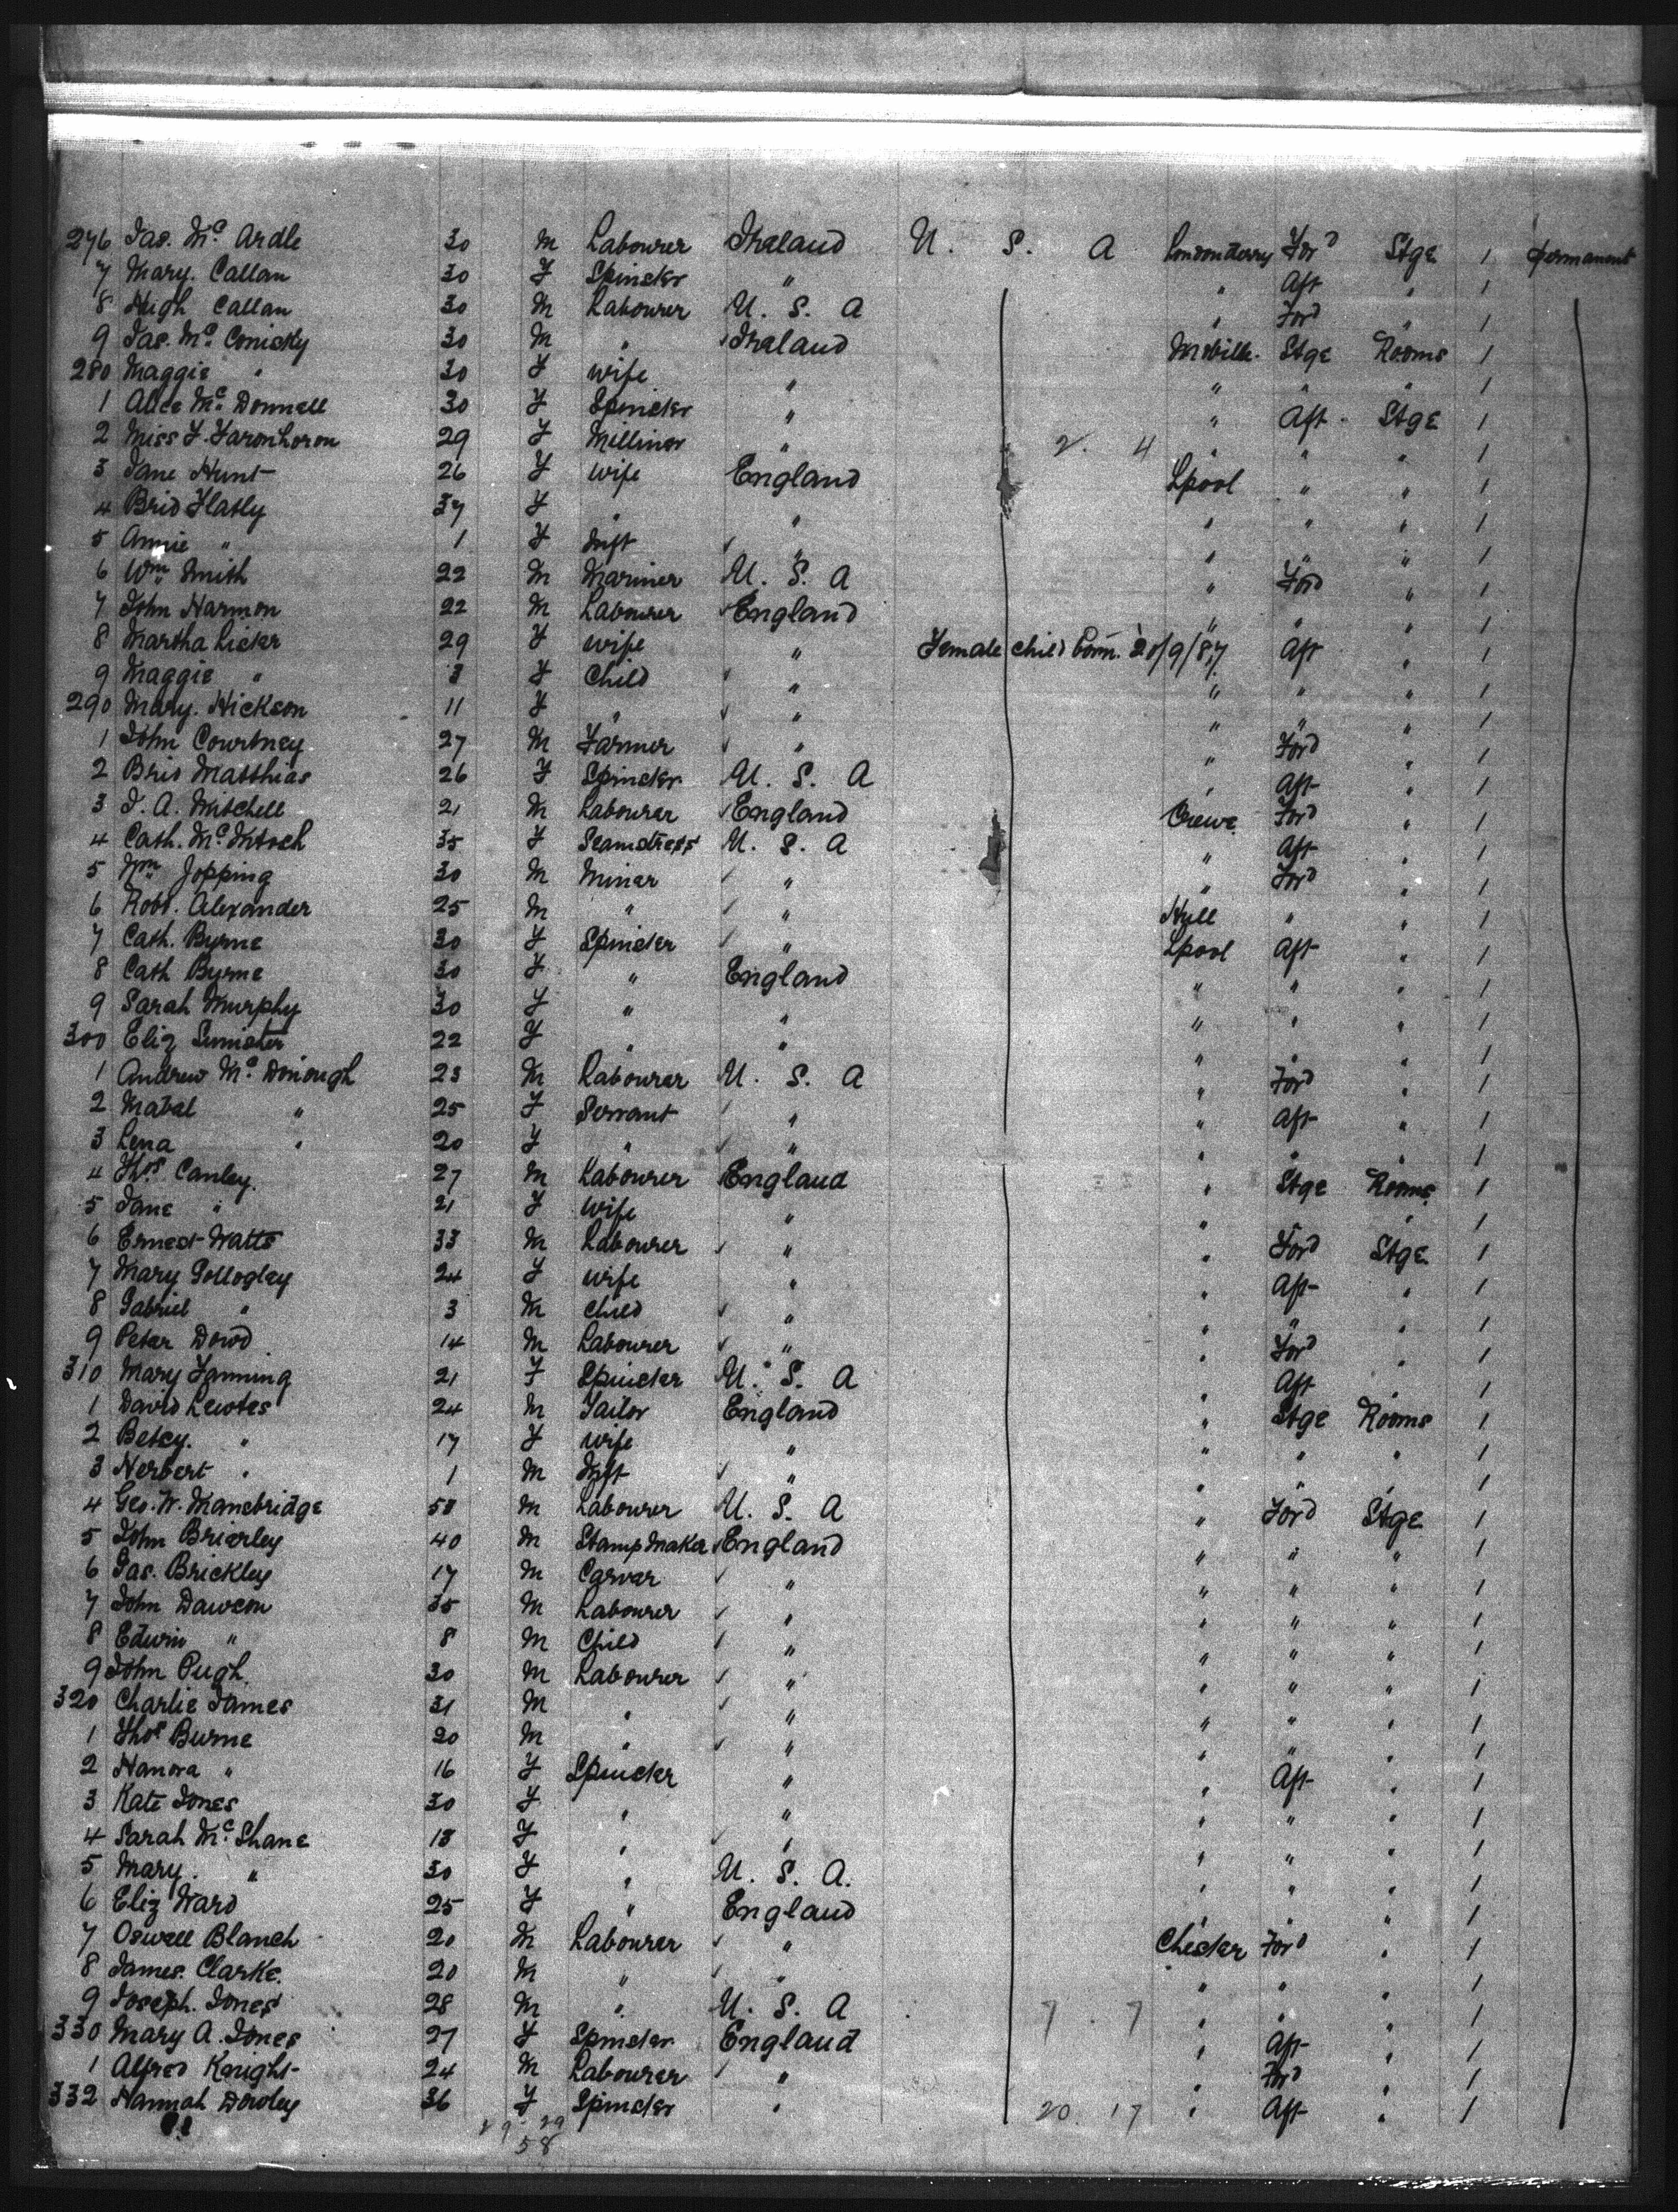 276 Jas. Mc Ardle 30 M Labourer Ireland U. S. A Londonderry For'd Stge 1 permanent
7 Mary. Callan 30 F Spinster " " Aft " 1
8 Hugh Callan 30 M Labourer U. S. A " For'd " 1
9 Jas. Mc Conicky 30 M " Ireland Moville. Stge Rooms 1
280 Maggie " 30 F wife " " " " 1
1 Alice Mc Donnell 30 F Spinster " " Aft. Stge 1
2 Miss F. 29 F Milliner " 2. 4 " " " 1
3 Jane Hunt 26 F wife England Lpool " " 1
4 Brid Flatly 37 F " " " " " 1
5 Annie " 1 F Inft " " " " 1
6 Wm Smith 22 M Mariner U. S. A " For'd " 1
7 John Harmon 22 M Labourer England " " " 1
8 Martha Lister 29 F wife " Female child born. 20/9/87 Aft " 1
9 Maggie " 3 F Child " " " " 1
290 Mary. Hickson 11 F " " " " " 1
1 John Courtney 27 M Farmer " " For'd " 1
2 Brid Matthias 26 F Spinster U. S. A " Aft " 1
3 J. A. Mitchell 21 M Labourer England Crewe For'd " 1
4 Cath. Mc 35 F Seamstress U. S. A " Aft " 1
5 Wm Jopping 30 M Miner " " For'd " 1
6 Robt. Alexander 25 M " " Hull " " 1
7 Cath. Byrne 30 F Spinster " Lpool Aft " 1
8 Cath Byrne 30 F " England " " " 1
9 Sarah Murphy 30 F " " " " " 1
300 Eliz 22 F " " " " " 1
1 Andrew Mc Donough 23 M Labourer U. S. A " For'd " 1
2 Mabal " 25 F Servant " " Aft " 1
3 Lena " 20 F " " " " " 1
4 Thos Canley. 27 M Labourer England " Stge Rooms 1
5 Jane " 21 F wife " " " 1
6 Ernest Watts 33 M Labourer " " For'd Stge 1
7 Mary Gollogley 24 F wife " " Aft " 1
8 Gabriel " 3 M child " " " " 1
9 Peter Dowd 14 M Labourer " " For'd " 1
310 Mary Fanning 21 F Spinster U. S. A " Aft " 1
1 David Lewtes 24 M Tailor England " Stge Rooms 1
2 Betsy. " 17 F wife " " " " 1
3 Herbert " 1 M Inft " " " 1
4 Geo. W. Manebridge 58 M Labourer U. S. A " For'd Stge 1
5 John Brierley 40 M Stamp Maker England " " " 1
6 Jas. Brickley 17 M Carver " " " " 1
7 John Dawson 35 M Labourer " " " " 1
8 Edwin " 8 M Child " " " " 1
9 John Pugh 30 M Labourer " " " " 1
320 Charlie James 31 M " " " " " 1
1 Thos Burne 20 M " " " " " 1
2 Hanora " 16 F Spinster " " Aft " 1
3 Kate Jones 30 F " " " " " 1
4 Sarah Mc Shane 18 F " " " " " 1
5 Mary. " 30 F " U. S. A. " " " 1
6 Eliz Ward 25 F " England " " " 1
7 Oswell Blanch 20 M Labourer " Chester For'd " 1
8 James. Clarke. 20 M " " " " " 1
9 Joseph. Jones 28 M " U. S. A 7. 7 " " " 1
330 Mary A. Jones 27 F Spinster England " Aft " 1
1 Alfred Knight 24 M Labourer " For'd " 1
332 Hannah Dowley 36 F Spinster " 20. 17 " Aft " 1
29 29
58